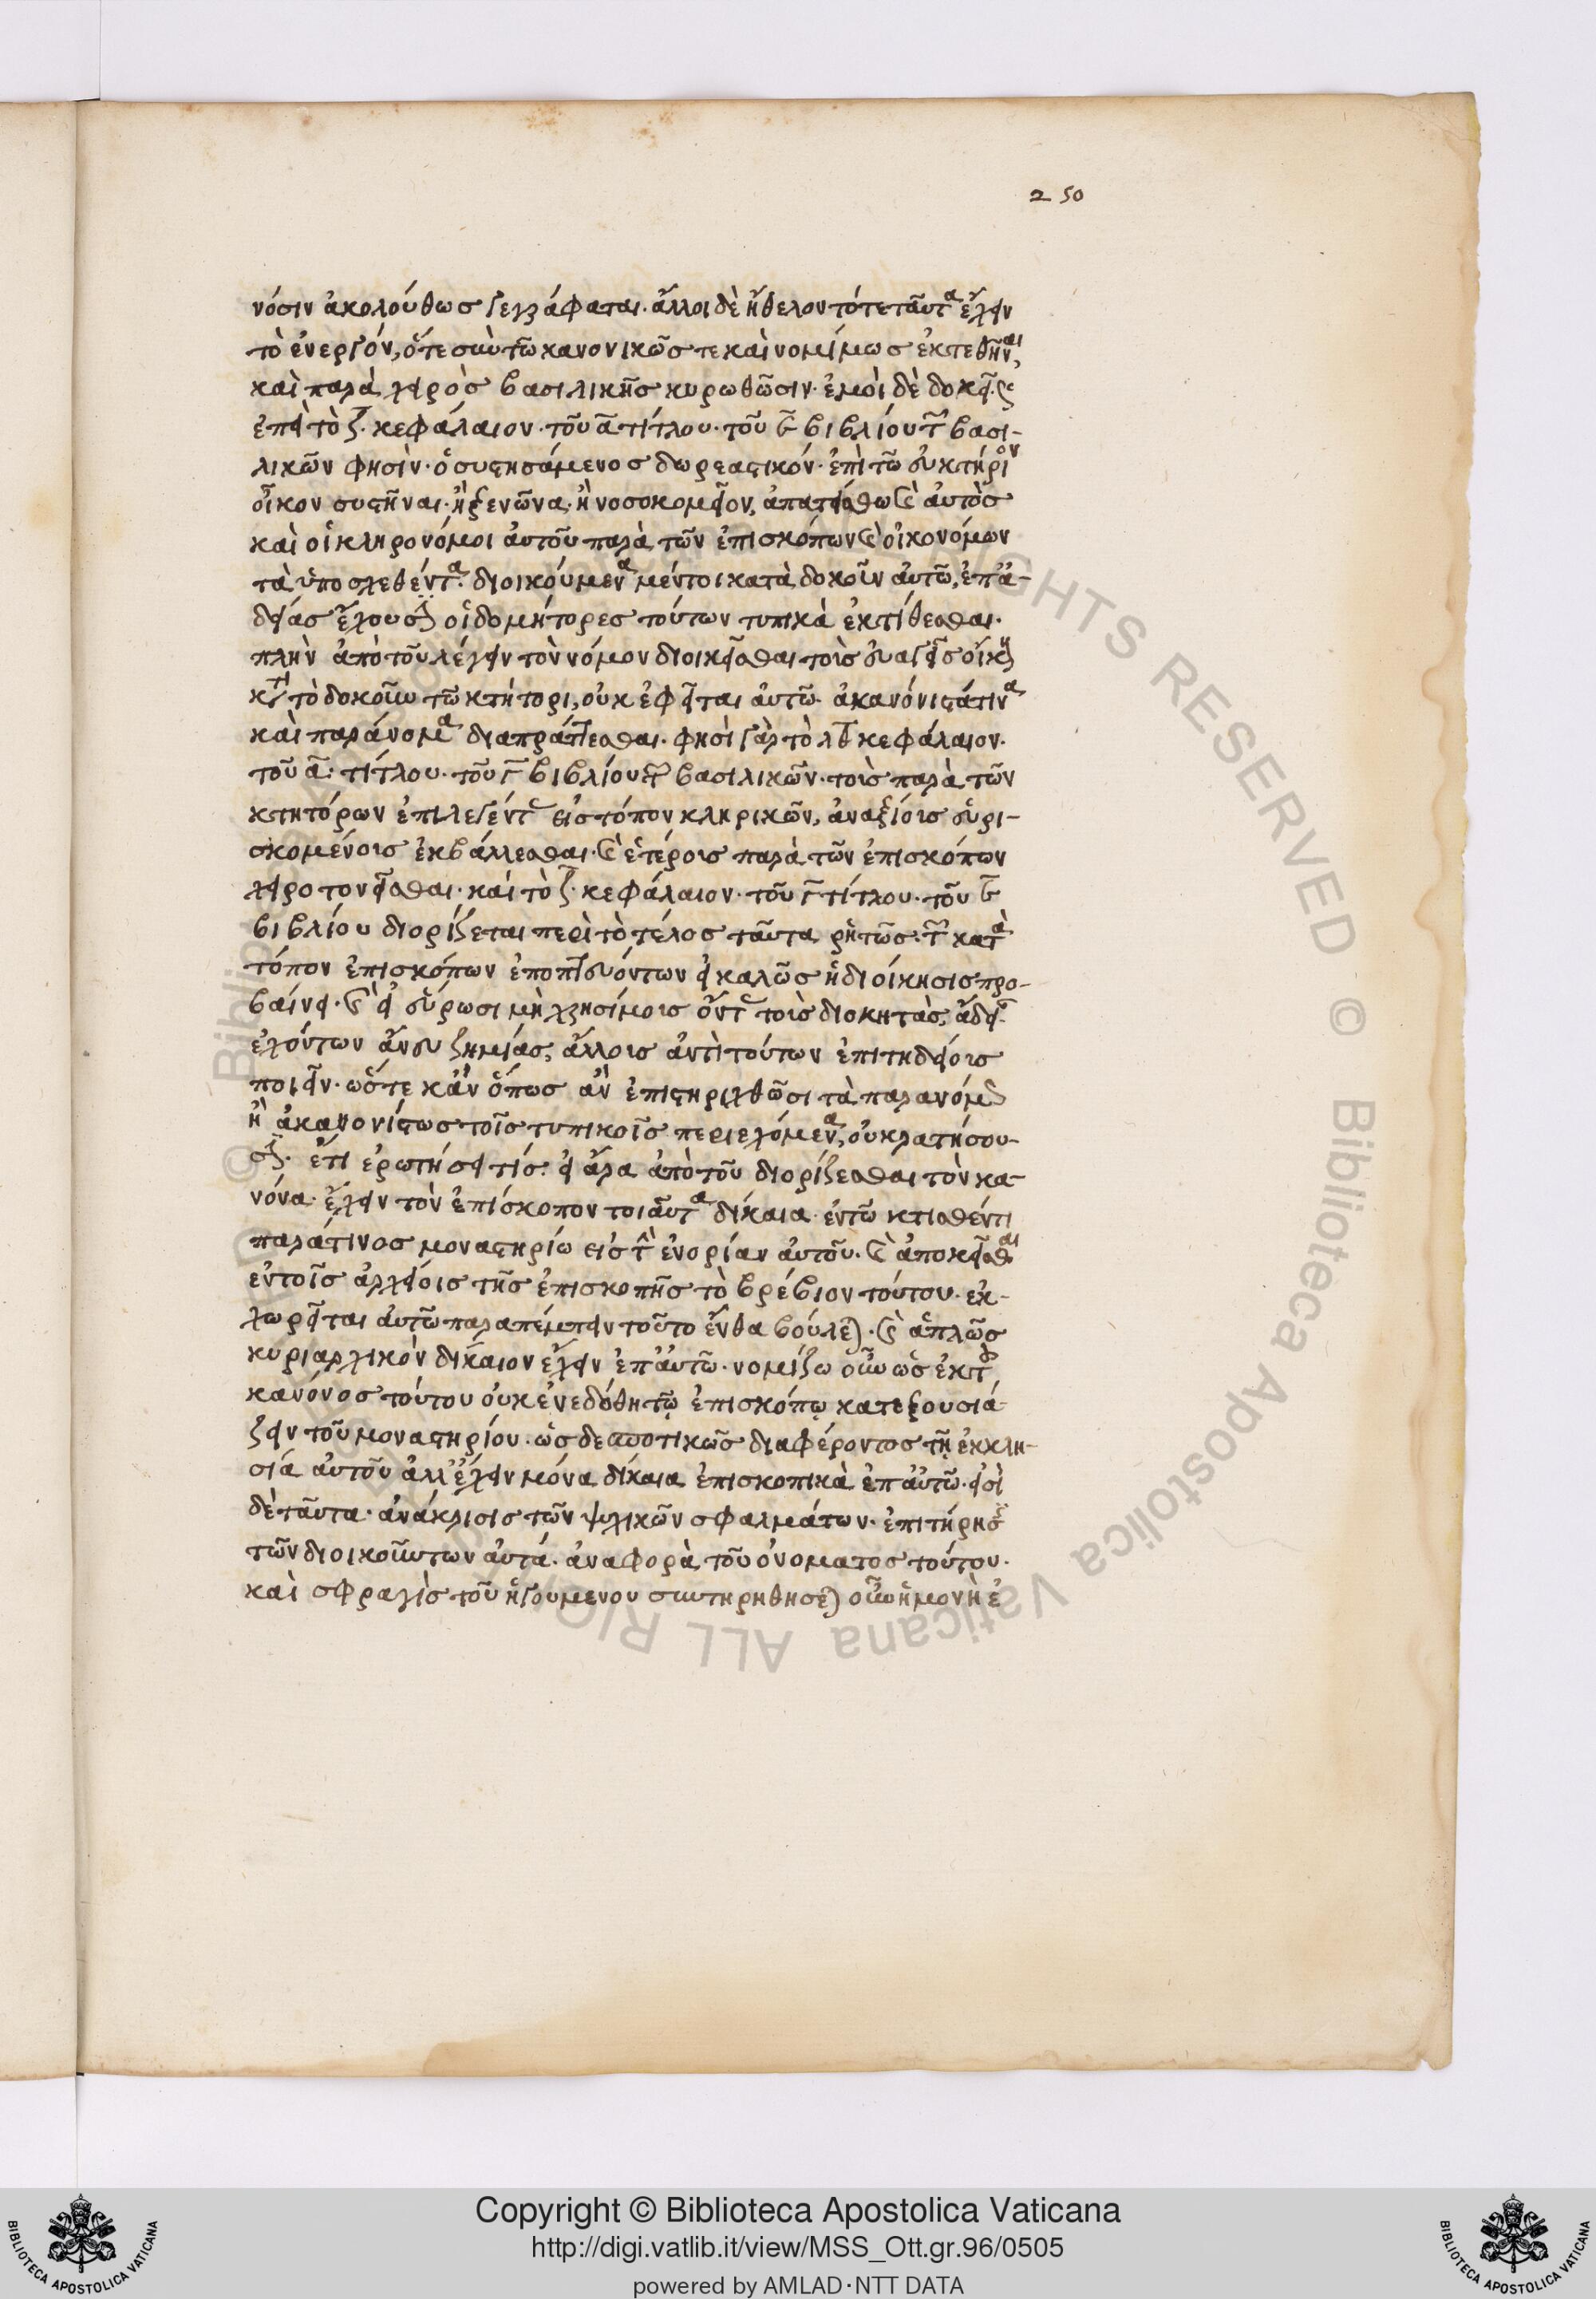 250
νόσιν ἀκολούθως γεγράφαται· ἄλλοι δὲ ἤθελον τότε ταῦτα ἔχειν
τὸ ἐνεργόν, ὅτε σὺν τῶ κανονικῶς τε καὶ νομίμως ἐκτεθῆναι,
καὶ παρὰ χειρὸς βασιλικῆς κυρωθῶσιν· ἐμοὶ δὲ δοκεῖ·
ἐπεὶ τὸ ζ· κεφάλαιον· τοῦ α τίτλου· τοῦ ε βιβλίου τῶν βασι-
λικῶν φησὶν· ὁ συστησάμενος δωρεαστικόν· ἐπὶ τῶ εὐκτήριον
οἶκον συστῆναι· ἢ ξενῶνα· ἢ νοσοκομεῖον, ἀπατείσθω καὶ αὐτὸς
καὶ οἱ κληρονόμοι αὐτοῦ παρὰ τῶν ἐπισκόπων καὶ οἰκονόμων
τὰ ὑποσχεθέντα· διοικούμενα μέντοι κατὰ δοκοῦν αὐτῶ, ἐπ' ἀ-
δείας ἔχουσιν οἱ δομήτορες τούτων τυπικὰ ἐκτίθεσθαι·
πλὴν ἀπὸ τοῦ λέγειν τὸν νόμον διοικεῖσθαι τοὺς εὐαγεῖς οἴκους
κατὰ τὸ δοκοῦν τῶ κτήτορι, οὐκ ἐφεῖται αὐτῶ· ἀκανόνιστά τινα
καὶ παράνομα διαπράττεσθαι· φησὶ γὰρ τὸ λθ κεφάλαιον·
τοῦ α· τίτλου· τοῦ γ βιβλίου τῶν βασιλικῶν· τοὺς παρὰ τῶν
κτητόρων ἐπιλεγέντας εἰς τόπον κληρικῶν, ἀναξίους εὑρι-
σκομένους ἐκβάλλεσθαι· καὶ ἑτέρους παρὰ τῶν ἐπισκόπων
χειροτονεῖσθαι· καί τὸ ζ· κεφάλαιον· τοῦ γ τίτλου· τοῦ ε
βιβλίου διορίζεται περὶ τὸ τέλος ταῦτα ῥητῶς· τῶν κατὰ
τόπον ἐπισκόπων ἐποπτευόντων εἰ καλῶς ἡ διοίκησις προ-
βαίνει· καὶ εἰ εὕρωσι μὴ χρησίμους ὄντας τοὺς διοκητὰς, ἄδειαν
ἐχόντων ἄνευ ζημίας, ἄλλους ἀντὶ τούτων ἐπιτηδείους
ποιεῖν· ὥστε κἂν ὅπως ἂν ἐπιστηριχθῶσι τὰ παρανόμως
ἢ ἀκανονίστως τοῖς τυπικοῖς περιεχόμενα, οὐ κρατήσου-
σιν· ἔτι ἐρωτήσει τίς· εἰ ἄρα ἀπὸ τοῦ διορίζεσθαι τὸν κα-
νόνα· ἔχειν τὸν ἐπίσκοπον τοιαῦτα δίκαια· ἐν τῶ κτισθέντι
παρά τινος μοναστηρίω εἰς τὴν ἐνορίαν αὐτοῦ· καὶ ἀποκεῖσθαι
ἐν τοῖς ἀρχείοις τῆς ἐπισκοπῆς τὸ βρέβιον τούτου· ἐκ-
χωρεῖται αὐτῶ παραπέμπειν τοῦτο ἔνθα βούλεται· καὶ ἁπλῶς
κυριαρχικὸν δίκαιον ἔχειν ἐπ' αὐτῶ· νομίζω οὖν ὡς ἐκ τοῦ
κανόνος τούτου οὐκ ἐνεδόθη τῷ ἐπισκόπῳ κατεξουσιά-
ζειν τοῦ μοναστηρίου· ὡς δεσποτικῶς διαφέροντος τῇ ἐκκλη-
σιά αὐτοῦ ἀλλ' ἔχειν μόνα δίκαια ἐπισκοπικὰ ἐπ' αὐτῶ· εἰσὶ
δὲ ταῦτα· ἀνάκρισις τῶν ψυχικῶν σφαλμάτων· ἐπιτήρησις
τῶν διοικούντων αὐτά· ἀναφορὰ τοῦ ὀνοματος τούτου·
καὶ σφραγὶς τοῦ ἡγουμενου συντηρηθησεται οὖν ἡ μονὴ ἐ
Copyright © Biblioteca Apostolica Vaticana
http://digi.vatlib.it/view/MSS_Ott.gr.96/0505
powered by AMLAD·NTT DATA